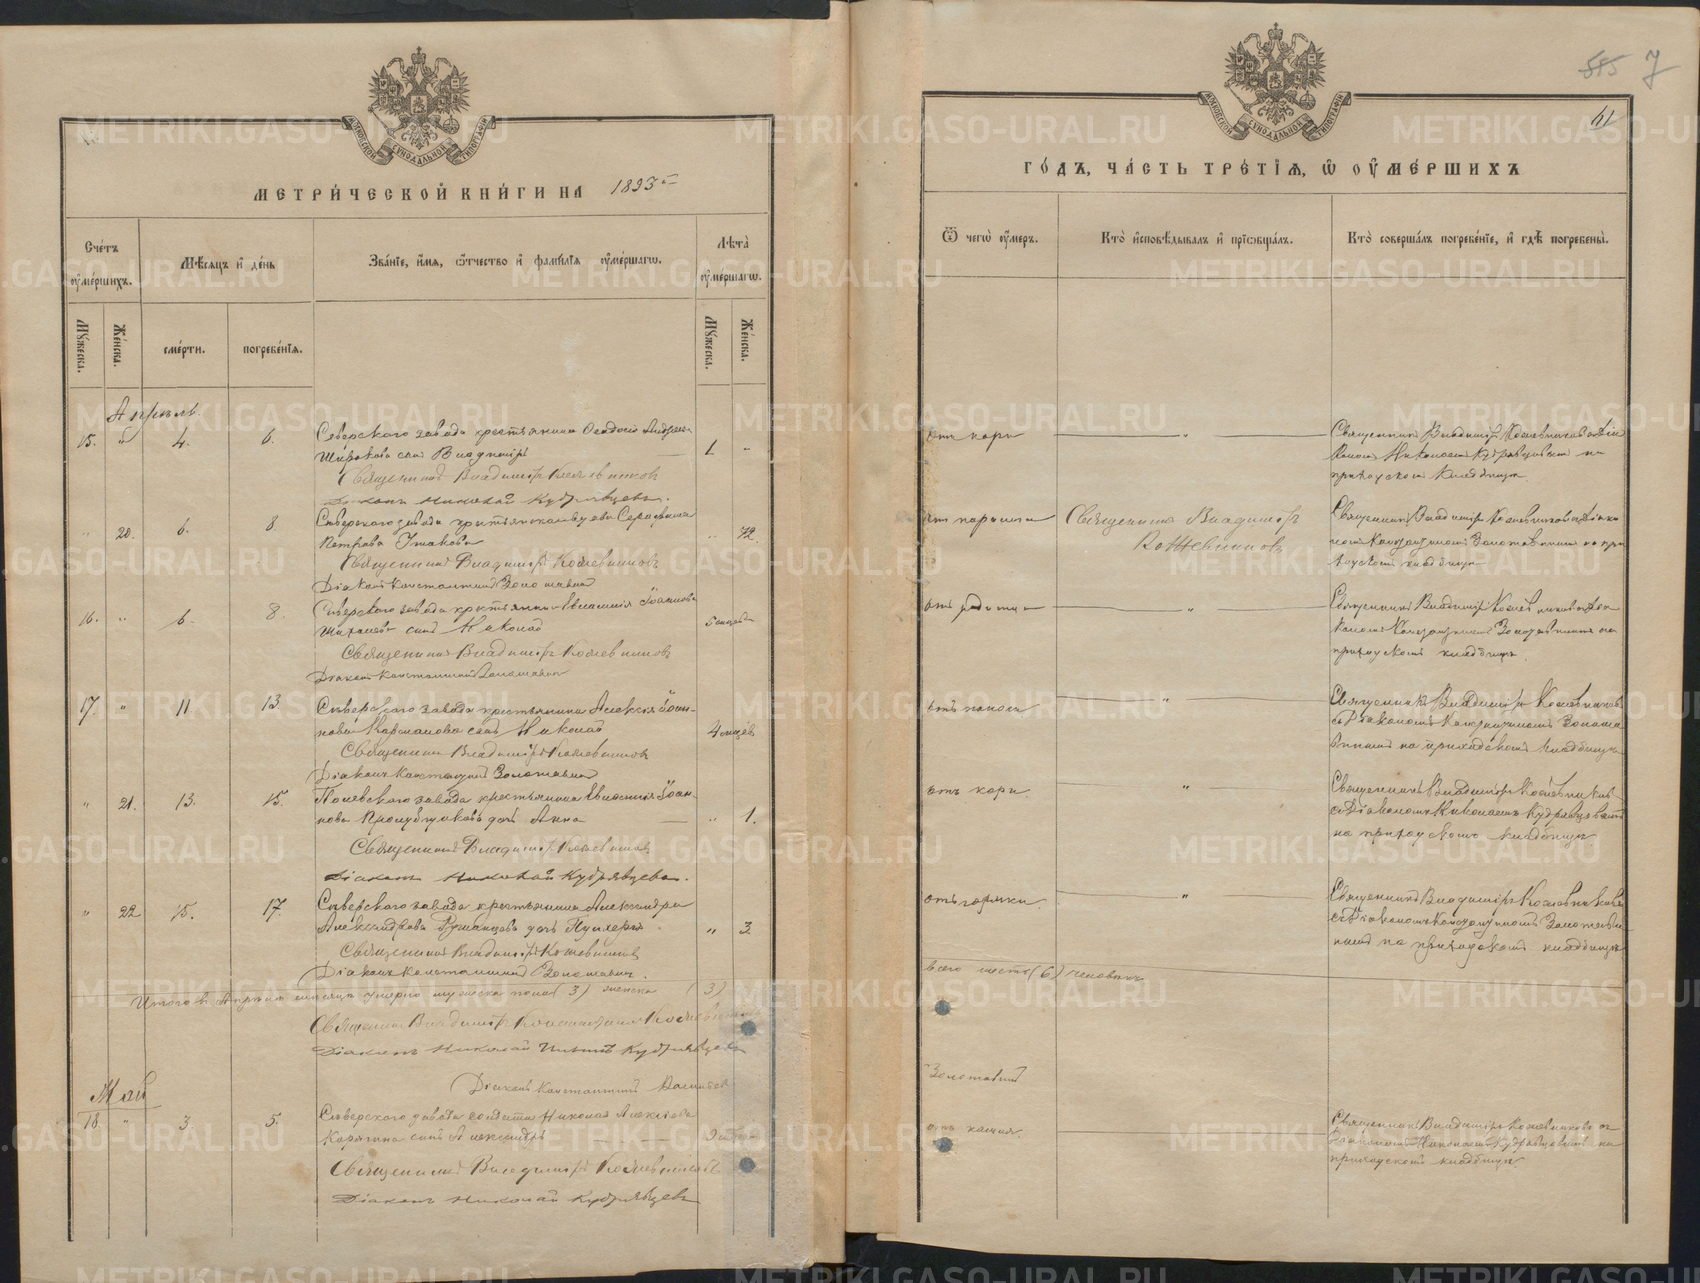 МОСКОВСКОЙ СѴНОДАЛЬНОЙ ТИПОГРАФІИ
МЕТРИ́ЧЕСКОЙ КНИ́ГИ НА 1893
Сче́тъ оу҆ме́ршихъ.
Мѣ́сяцъ и҆ де́нь
Зва́нїе, и҆́мя, ѻ҆́тчество и҆ фами́лїя оу҆ме́ршагѡ.
Лѣта̀ оу҆ме́ршагѡ.
Мꙋ́жеска. Же́нска. сме́рти. погребе́нїя. Мꙋ́жеска. Же́нска.
Апрѣль.
15. " 4. 6. Сѣверскаго завода крестьянина Андрея
Широкова сынъ Владиміръ 1 "
Священникъ Владиміръ Кожевниковъ
Діаконъ Николай Кудрявцевъ.
" 20. 6. 8. Сѣверскаго завода крестьянская вдова
Петрова Ушакова " 72.
Священникъ Владиміръ Кожевниковъ
Діаконъ Константинъ Золотавинъ
16. " 6. 8. Сѣверскаго завода крестьянина Іоаннова
сынъ Николай 5 мѣсяц.
Священникъ Владиміръ Кожевниковъ
Діаконъ Константинъ Золотавинъ
17. " 11. 13. Сѣверскаго завода крестьянина Алексія Іоан-
нова сынъ Николай 4 мѣсяц.
Священникъ Владиміръ Кожевниковъ
Діаконъ Константинъ Золотавинъ
" 21. 13. 15. Полевскаго завода крестьянина Іоан-
нова дочь Анна " 1.
Священникъ Владиміръ Кожевниковъ
Діаконъ Николай Кудрявцевъ.
" 22 15. 17. Сѣверскаго завода крестьянина Александра
Александрова Румянцова дочь " 3.
Священникъ Владиміръ Кожевниковъ
Діаконъ Константинъ Золотавинъ.
Итого въ Апрѣлѣ мѣсяцѣ умерло мужеска пола (3) женска (3)
Священникъ Владиміръ Кожевниковъ
Діаконъ Николай Кудрявцевъ
Діаконъ Константинъ
Май
18. " 3. 5. Сѣверскаго завода солдата Николая Алексѣева
сынъ Александръ
Священникъ Владиміръ Кожевниковъ
Діаконъ Николай Кудрявцевъ
585 7
61
МОСКОВСКОЙ СѴНОДАЛЬНОЙ ТИПОГРАФІИ
ГО́ДЪ, ЧА́СТЬ ТРЕ́ТЇЯ, Ѽ ОУ҆МЕ́РШИХЪ
Ѿ чегѡ̀ оу҆́меръ.
Кто̀ и҆сповѣ́дывалъ и҆ прїѻбща́лъ.
Кто̀ соверша́лъ погребе́нїе, и҆ гдѣ̀ погребены̀.
отъ кори "
Священникъ Владиміръ Кожевниковъ съ Діа
кономъ Николаемъ Кудрявцевымъ на
приходскомъ кладбищѣ
Священникъ Владиміръ
Кожевниковъ
Священникъ Владиміръ Кожевниковъ съ Діако
номъ Константиномъ Золотавинымъ на при
ходскомъ кладбищѣ
отъ родимца "
Священникъ Владиміръ Кожевниковъ съ Діа
кономъ Константиномъ Золотавинымъ на
приходскомъ кладбищѣ.
отъ поноса "
Священникъ Владиміръ Кожевниковъ
съ Діакономъ Константиномъ Золота
винымъ на приходскомъ кладбищѣ
отъ кори. "
Священникъ Владиміръ Кожевниковъ
съ Діакономъ Николаемъ Кудрявцевымъ
на приходскомъ кладбищѣ.
отъ горячки. "
Священникъ Владиміръ Кожевниковъ
съ Діакономъ Константиномъ Золотави
нымъ на приходскомъ кладбищѣ
всего шесть (6) человѣкъ
Золотавинъ
отъ кашля.
Священникъ Владиміръ Кожевниковъ съ
Діакономъ Николаемъ Кудрявцевымъ на
приходскомъ кладбищѣ
METRIKI.GASO-URAL.RU